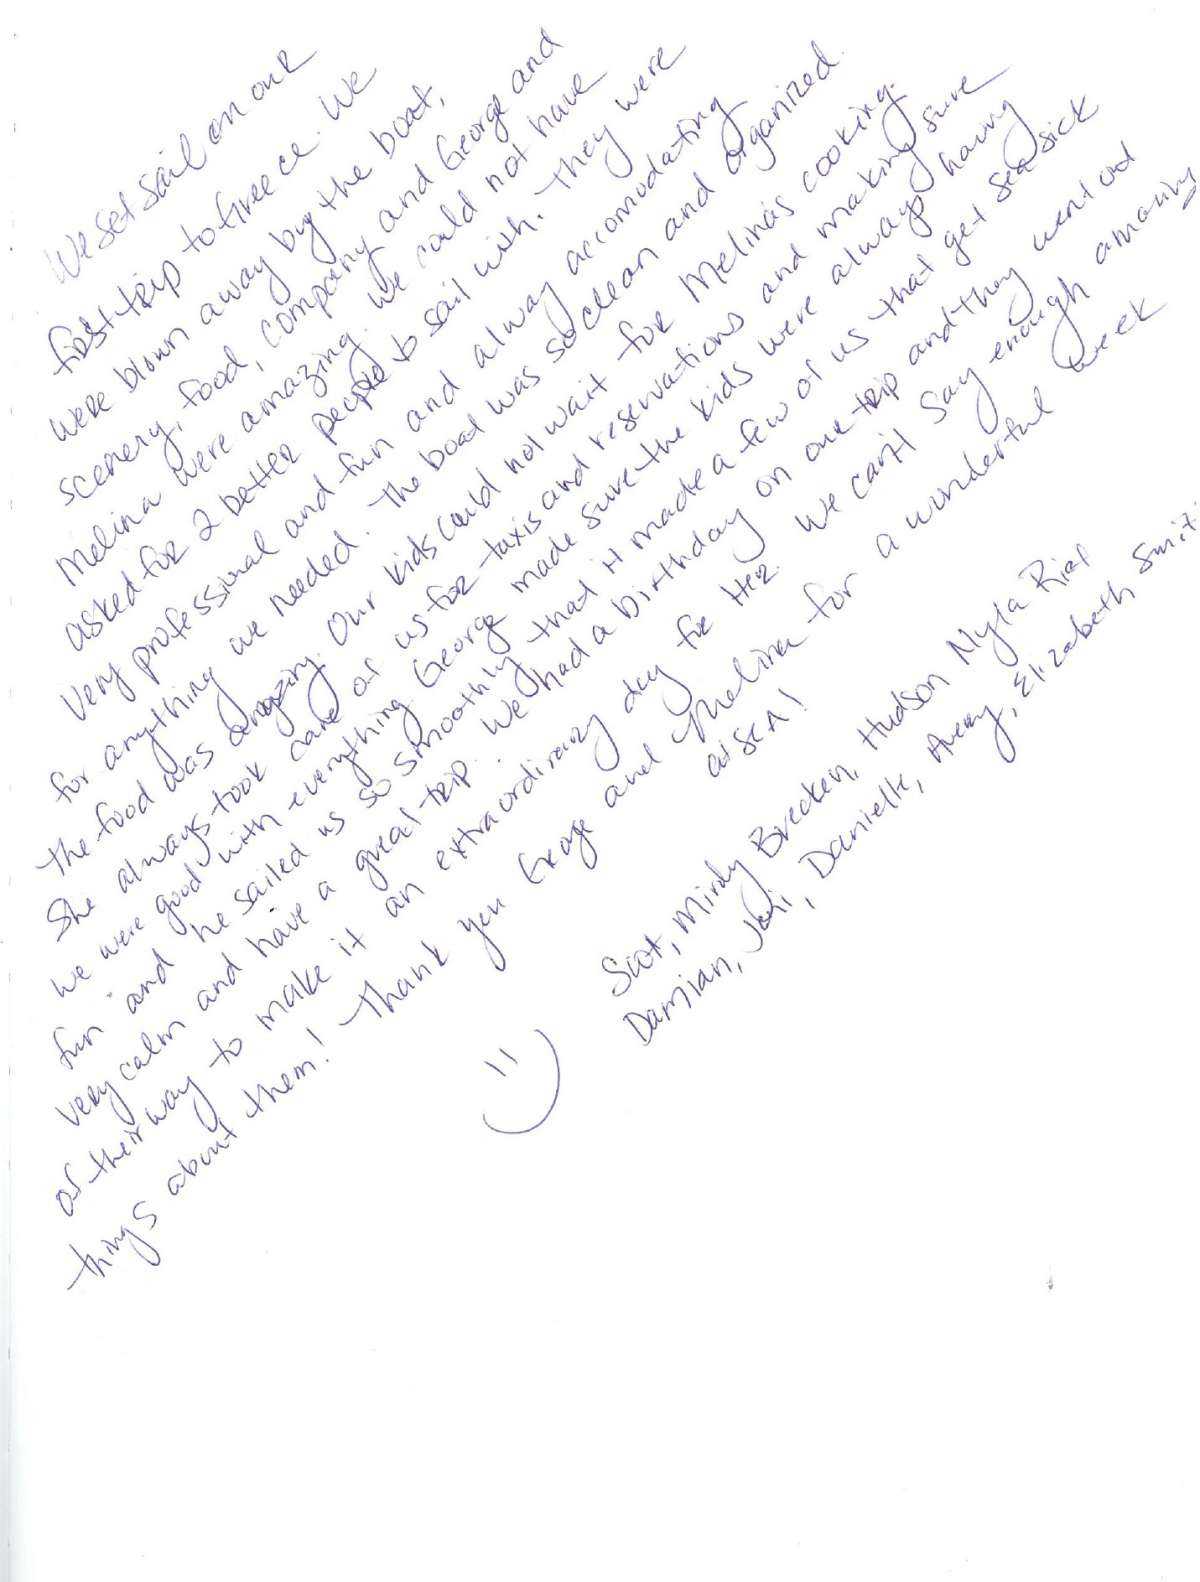 We set sail on our
first trip to Greece. We
were blown away by the boat,
scenery, food, company and George and
Melina were amazing. We could not have
asked for 2 better people to sail with. They were
very professional and fun and always accomodating
for anything we needed. The boat was so clean and organized.
The food was amazing. Our kids could not wait for Melina's cooking.
She always took care of us for taxis and reservations and making sure
we were good with everything. George made sure the kids were always having
fun and he sailed us so smoothly that it made a few of us that get sea sick
very calm and have a great trip. We had a birthday on our trip and they went out
of their way to make it an extraordinary day for Her. We can't say enough amazing
things about them! Thank you George and Melina for a wonderful week
at SEA!
Scot, Mindy, Brecken, Hudson Nyla Rief
Damian, Joni, Danielle, Avery, Elizabeth Smit.